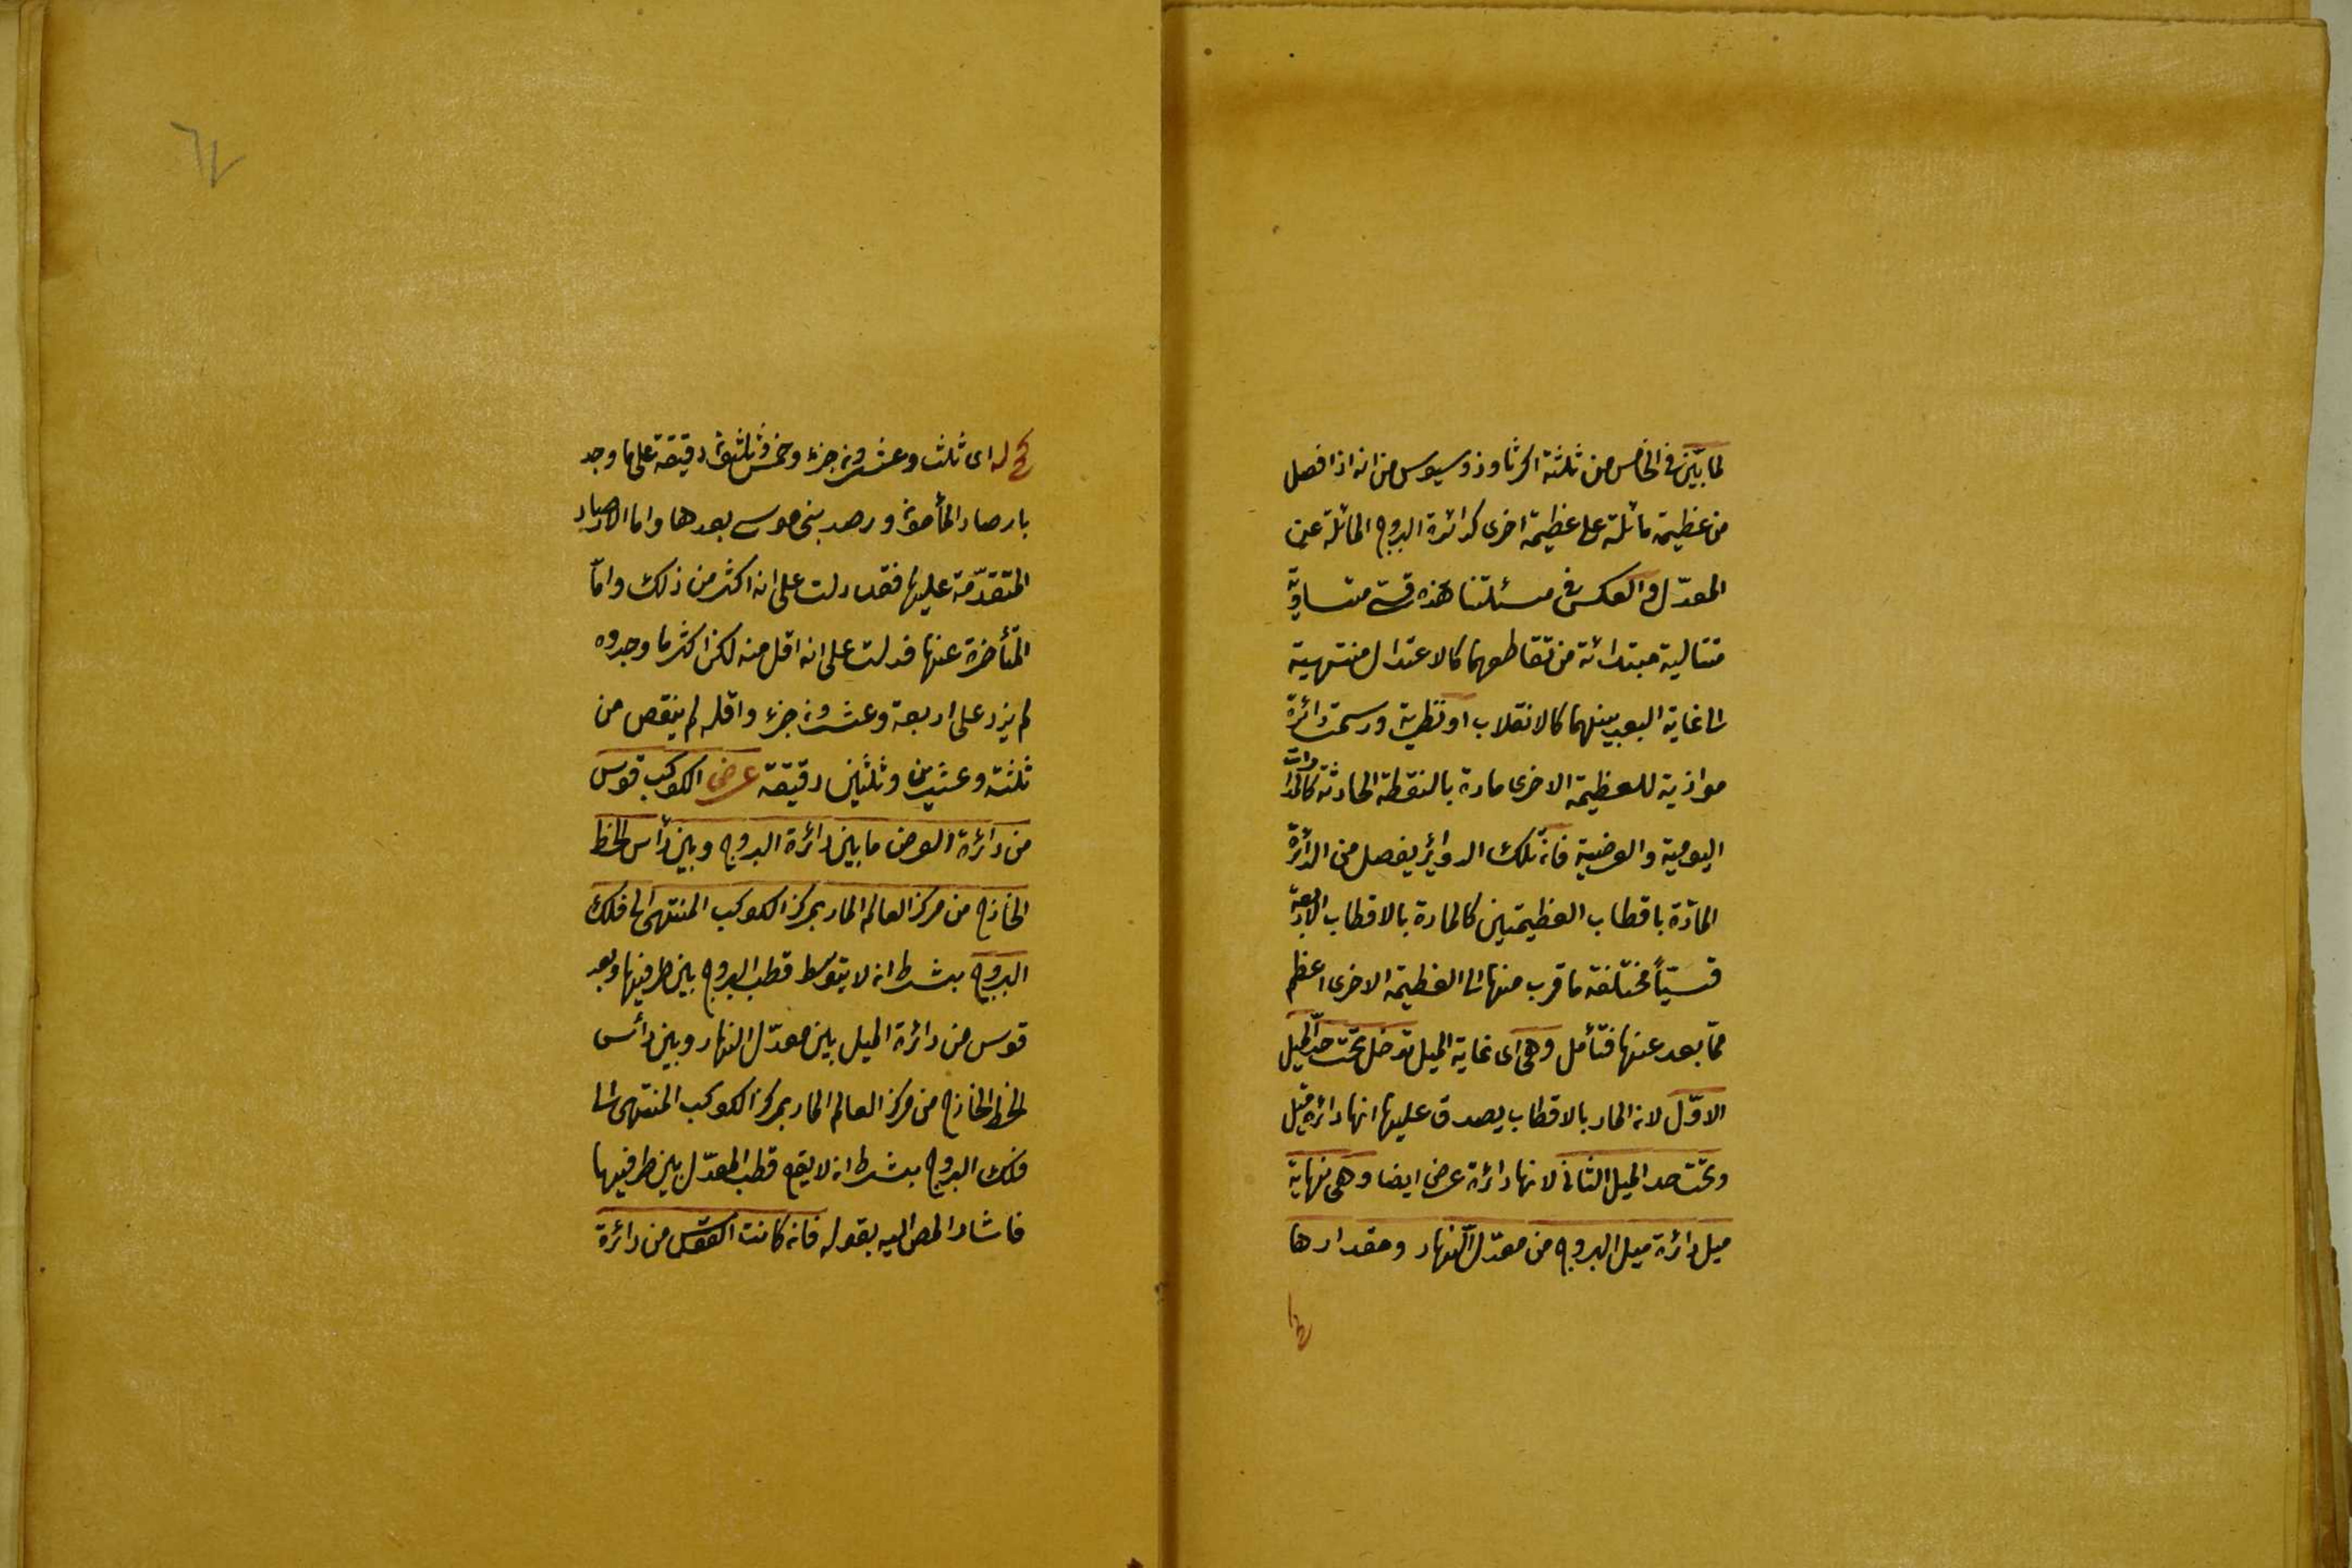 لما بيّن فى الخامس من ثلثة اكر ثاوذوسيوس من انه اذا فصل
من عظيمة مائلة على عظيمة اخرى كدائرة البروج المائلة عن
المعدّل والعكس فى مسئلتنا هذه قسى متساوية
متتالية مبتدائة من تقاطعهما كالاعتدال منتهية
الى غاية البعد بينهما كالانقلاب او نظيرته ورسمت دائرة
موازية للعظيمة الاخرى مارة بالنقطة الحادثة كالمدارات
اليومية والعرضية فان تلك الدوائر يفصل من الدائرة
المارّة باقطاب العظيمتين كالمارة بالاقطاب الاربعة
قسيّاً مختلفة ما قرب منها الى العظيمة الاخرى اعظم
ممّا بعد عنها فتأمل وهى اى غاية الميل تدخل تحت حدّ الميل
الاوّل لان المار بالاقطاب يصدق عليها انها دائرة ميل
وتحت حد الميل الثانى لانها دائرة عرض ايضا وهى نهاية
ميل دائرة ميل البروج من معدّل النهار ومقدارها
كج له اى ثلث وعشرون جزء وخمس وثلثون دقيقة على ما وجد
بارصاد المأمون ورصد بنى موسى بعدها واما الارصاد
المتقدّمة عليها فقد دلت على انه اكثر من ذلك وامّا
المتأخرة عنها فدلت على انه اقل منه لكن اكثر ما وجدوه
لم يزد على اربعة وعشرون جزء واقله لم ينقص من
ثلثة وعشرين وثلثين دقيقة عرض الكوكب قوس
من دائرة العرض ما بين دائرة البروج وبين رأس الخط
الخارج من مركز العالم المار بمركز الكوكب المنتهى الى فلك
البروج بشرط ان لا يتوسط قطب البروج بين طرفيها وبعده
قوس من دائرة الميل بين معدّل النهار وبين رأس
الخط الخارج من مركز العالم المار بمركز الكوكب المنتهى الى
فلك البروج بشرط ان لا يقع قطب المعدّل بين طرفيها
فاشار المص اليه بقوله فان كانت القوس من دائرة